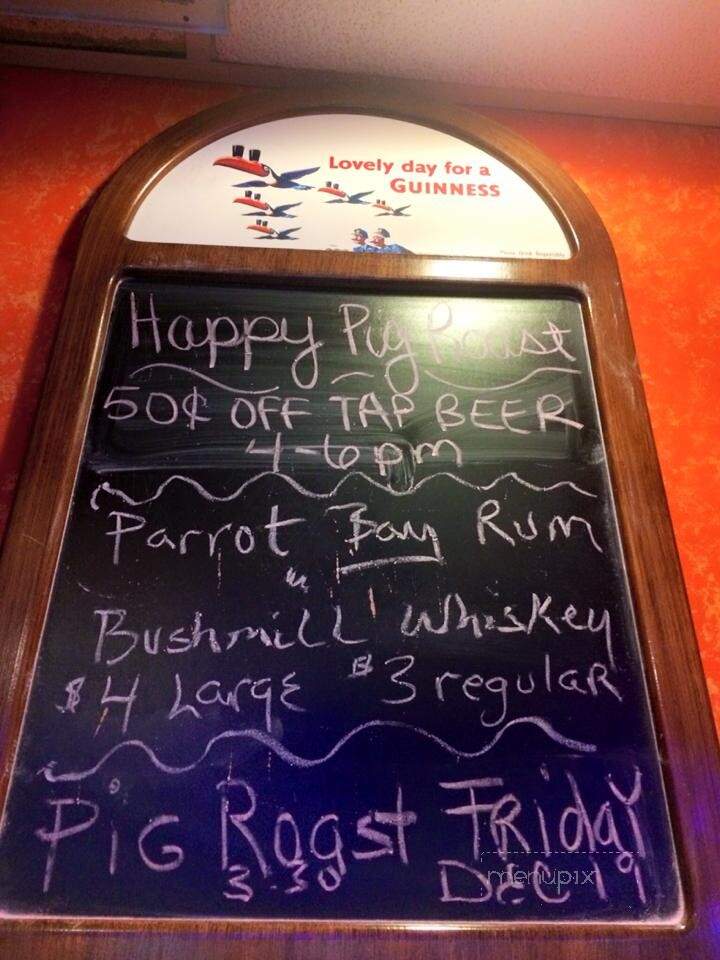 Lovely day for a
GUINNESS
Please Drink Responsibly.
Happy Pig Roast
50¢ OFF TAP BEER
4-6pm
Parrot Bay Rum
Bushmill Whiskey
$4 Large $3 regular
PiG Roast FRiday
3:30 DEC 19
menupix